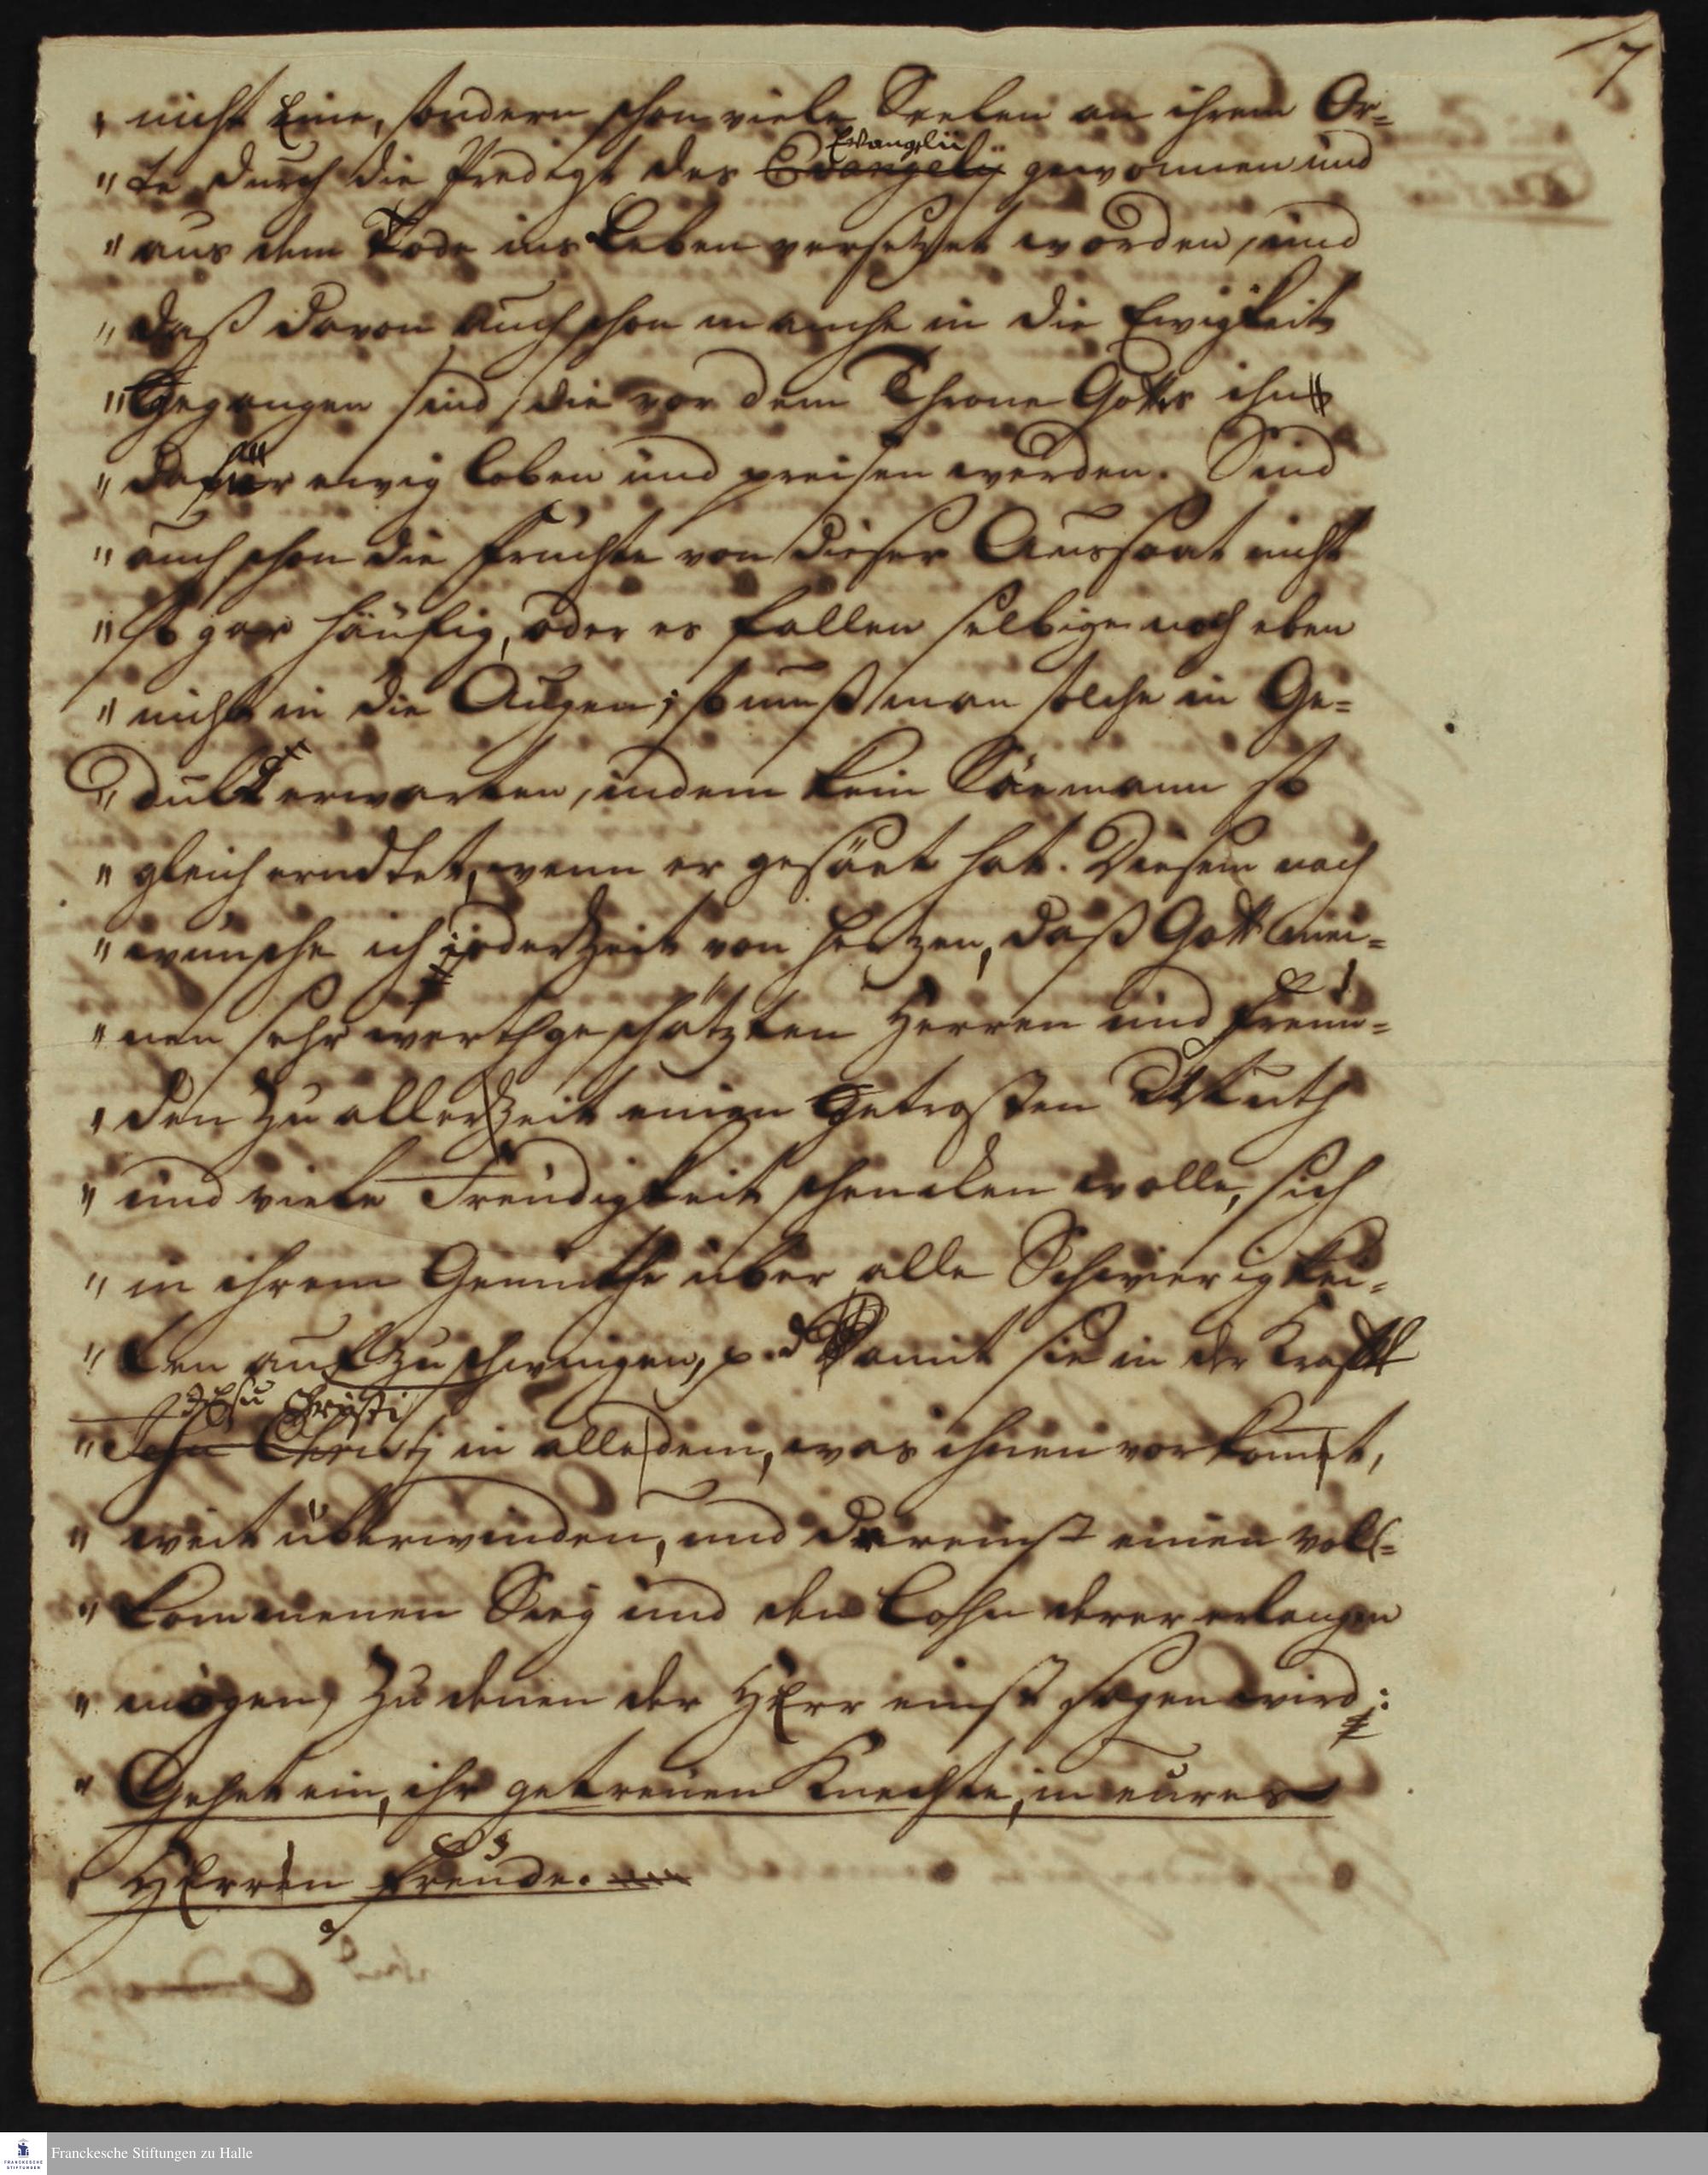 7
" nicht Eine, sondern schon viele Seelen an ihrem Or=
Evangelii
" te durch die Predigt des Evangelij gewonnen und
" aus dem Tode ins Leben versetzet worden, und
" daß davon auch schon manche in die Ewigkeit
" gegangen sind, die vor dem Throne Gottes ihn
" dafür ewig loben und preisen werden. Sind
" auch schon die Früchte von dieser Aussaat nicht
" so gar häufig, oder es fallen selbige noch eben
" nicht in die Augen; so muß man solche in Ge=
" duld erwarten, indem kein Säemann so
" gleich erndtet, wenn er gesäet hat. Diesem nach
" wünsche ich jederzeit von Hertzen, daß Gott mei=
" nen sehr werthgeschätzten Herren und Freun=
" den zu aller Zeit einen getrosten Muth
" und viele Freudigkeit schencken wolle, sich
" in ihrem Gemüthe über alle Schwierigkei=
" ten aufzuschwingen, p. damit sie in der Krafft
JEsu Christi
" Jesu Christi in alle dem, was ihnen vorkomt,
" weit überwinden, und dereinst einen voll=
" kommenen Sieg und den Lohn derer erlangen
" mögen, zu denen der HErr einst sagen wird:
" Gehet ein, ihr getreuen Knechte, in eures
" HErren Freude.
Franckesche Stiftungen zu Halle
FRANCKESCHE
STIFTUNGEN